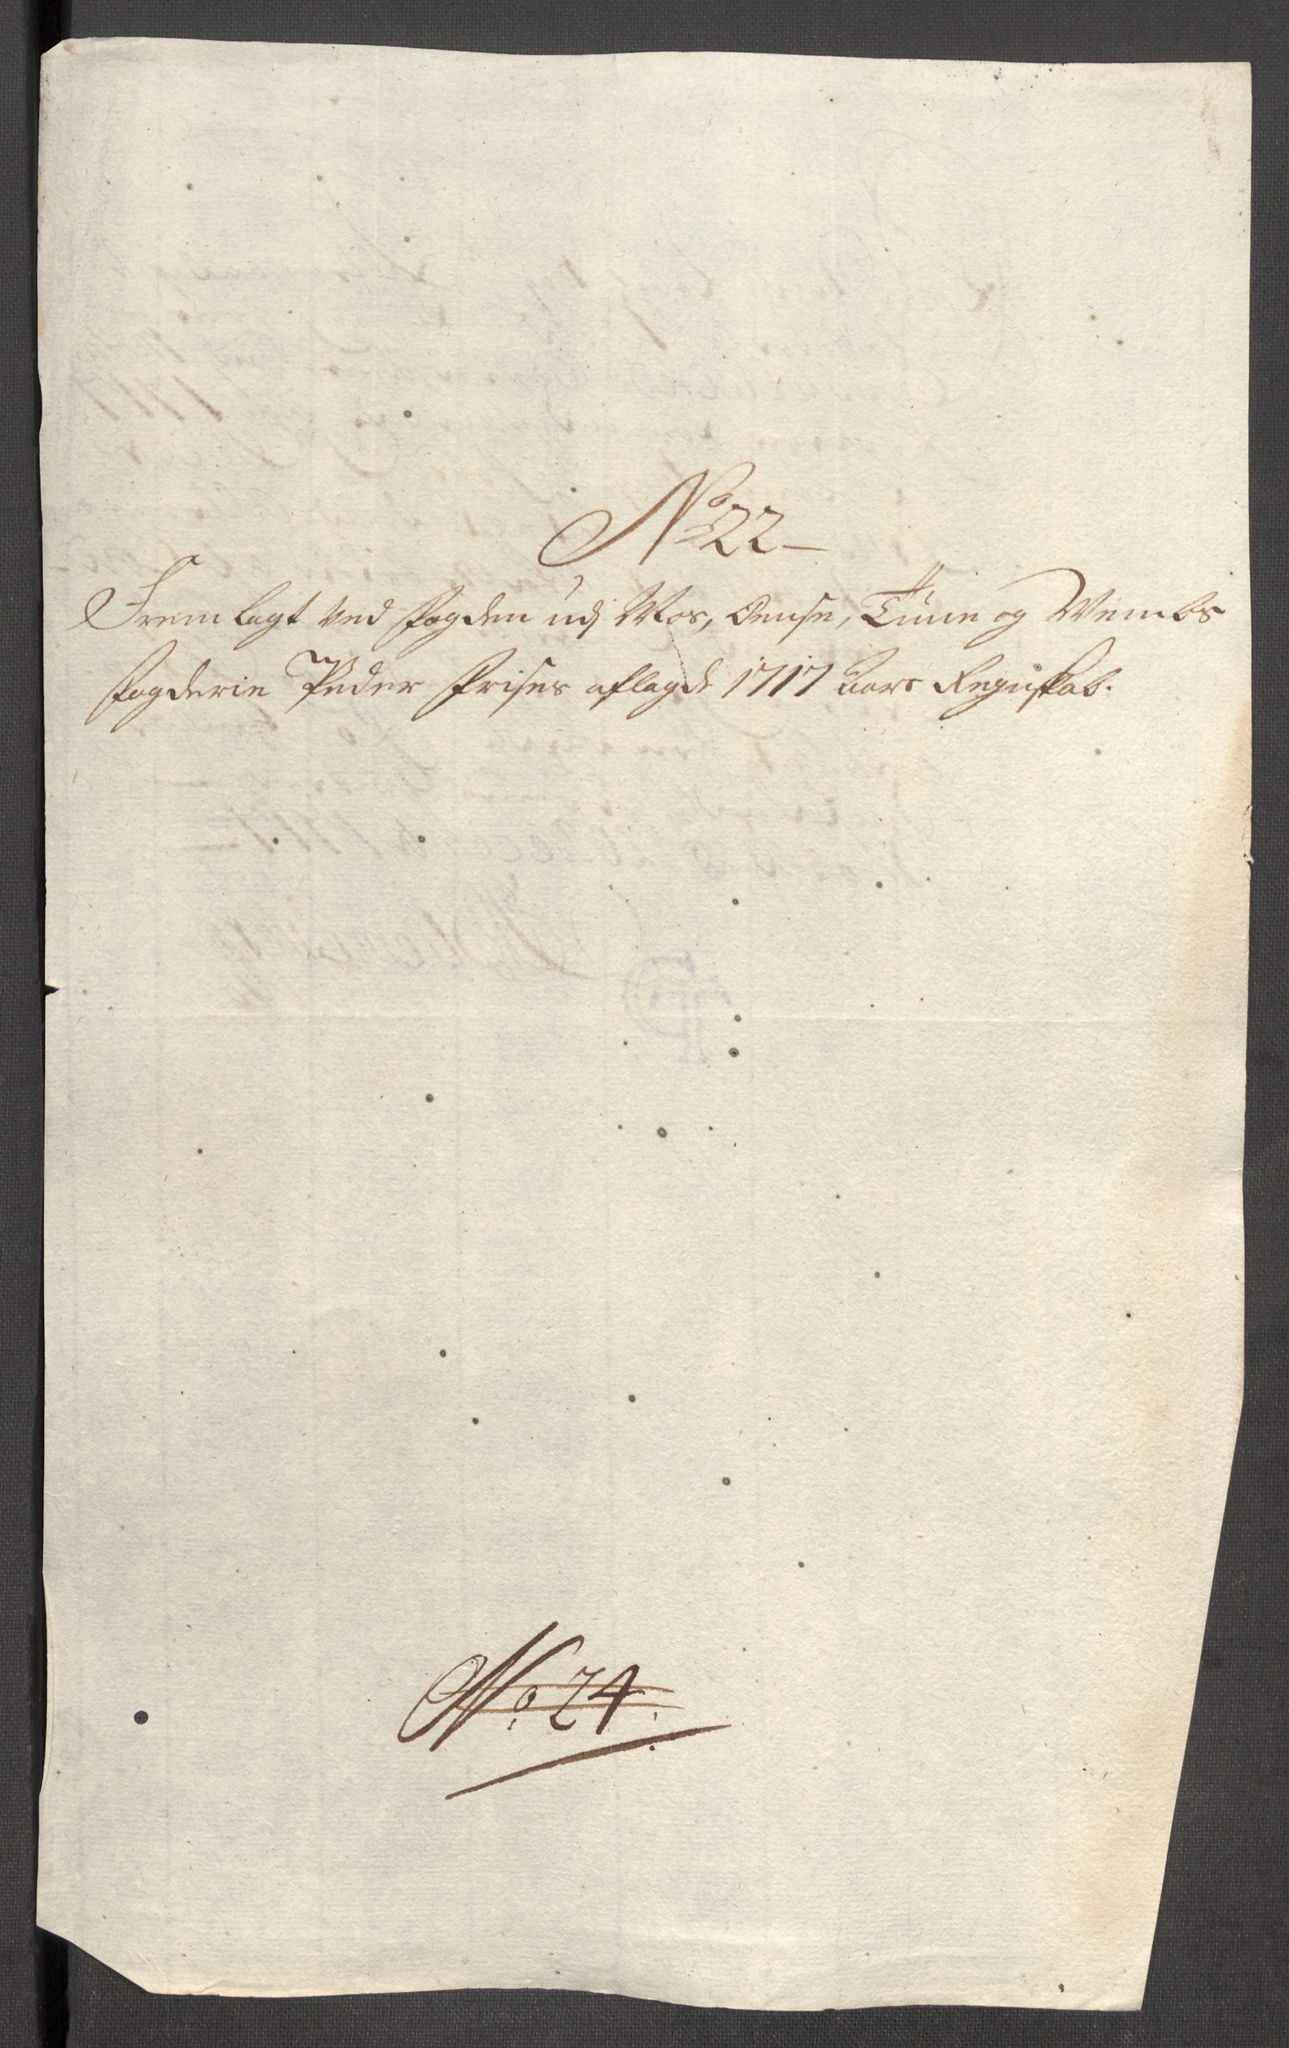 No 22
Fremlagt ved fogden udj Mos, Onsøe, Tune og Wembs
fogderie Peder Prises aflagde 1717 aars Regnskab.
No. 24.